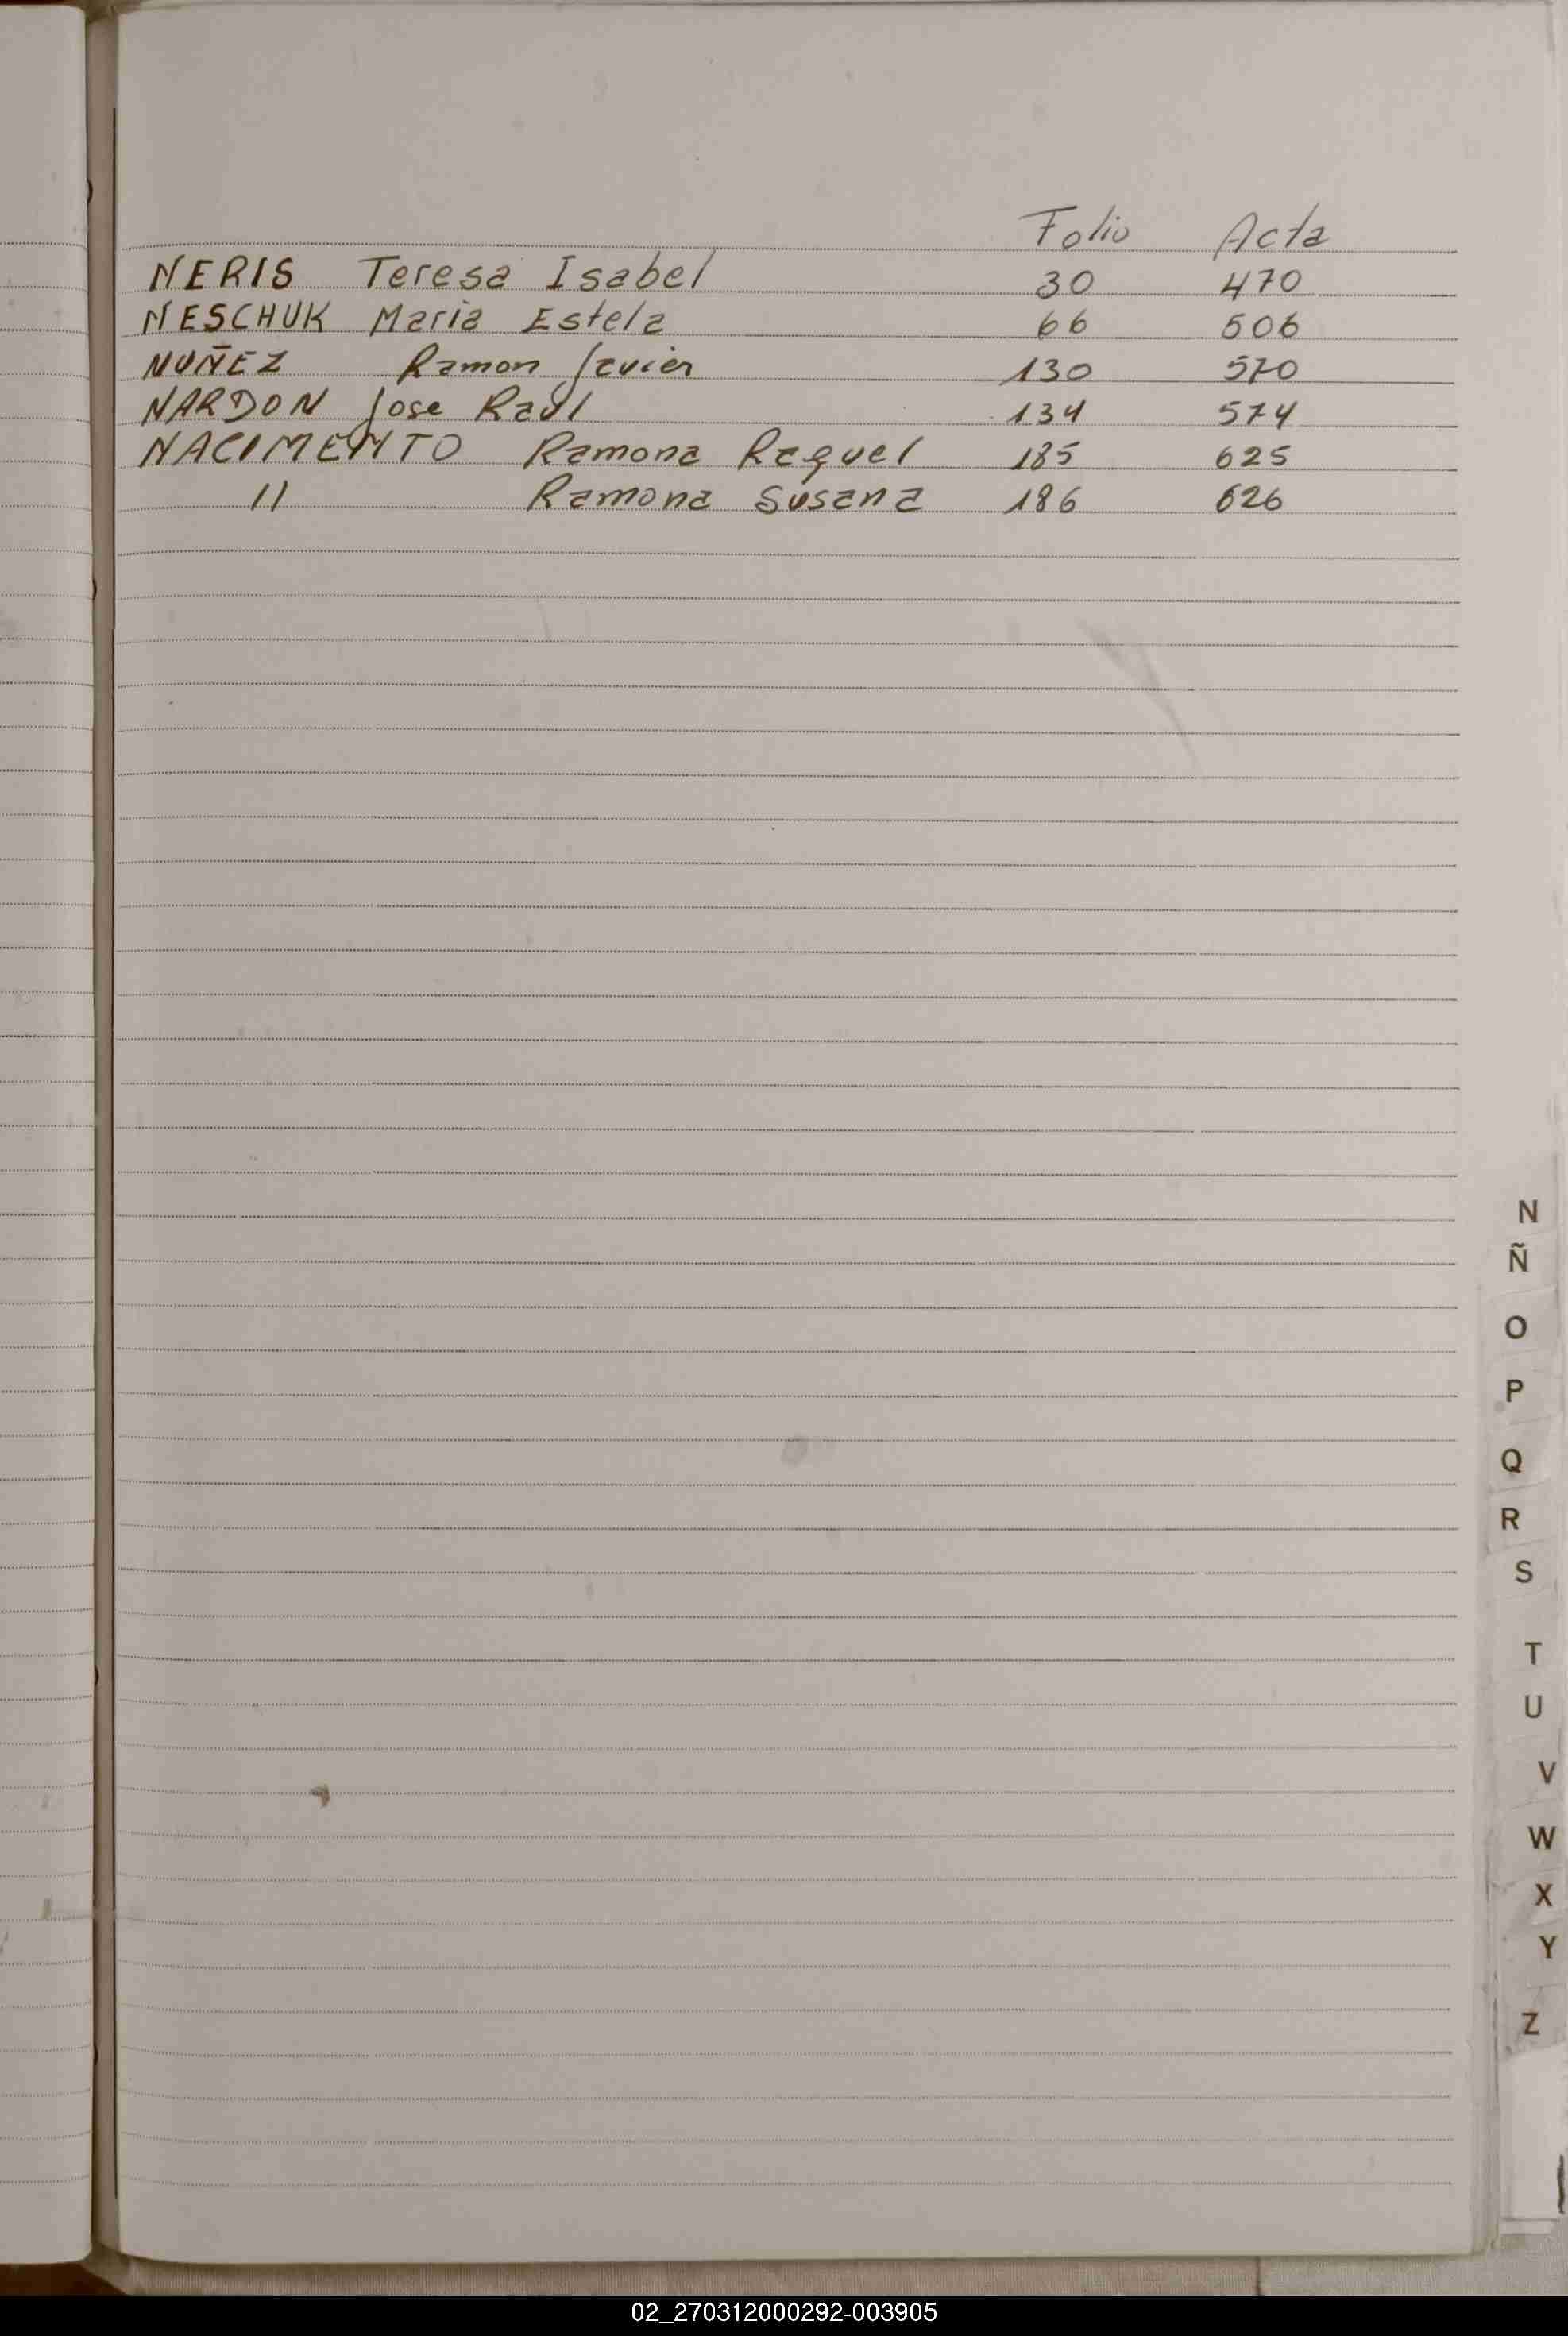 Folio Acta
NERIS Teresa Isabel 30 470
NESCHUK Maria Estela 66 506
NUÑEZ Ramon Javier 130 570
NARDON Jose Raúl 134 574
NACIMENTO Ramona Raquel 185 625
11 Ramona Susana 186 626
N
Ñ
O
P
Q
R
S
T
U
V
W
X
Y
Z
02_270312000292-003905